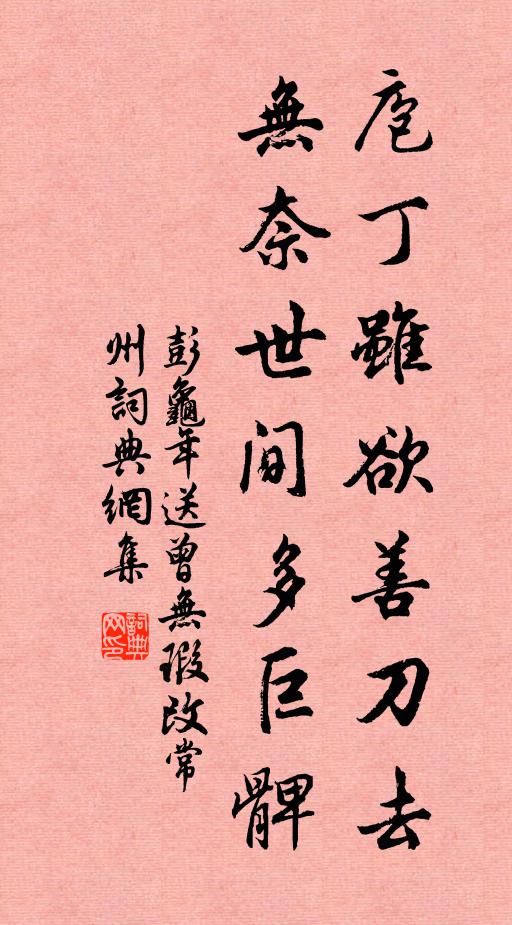 庖丁雖欲善刀去
無奈世间多巨髀
彭龜年送曾無瑕改常
州詞典網集
詞典
网印